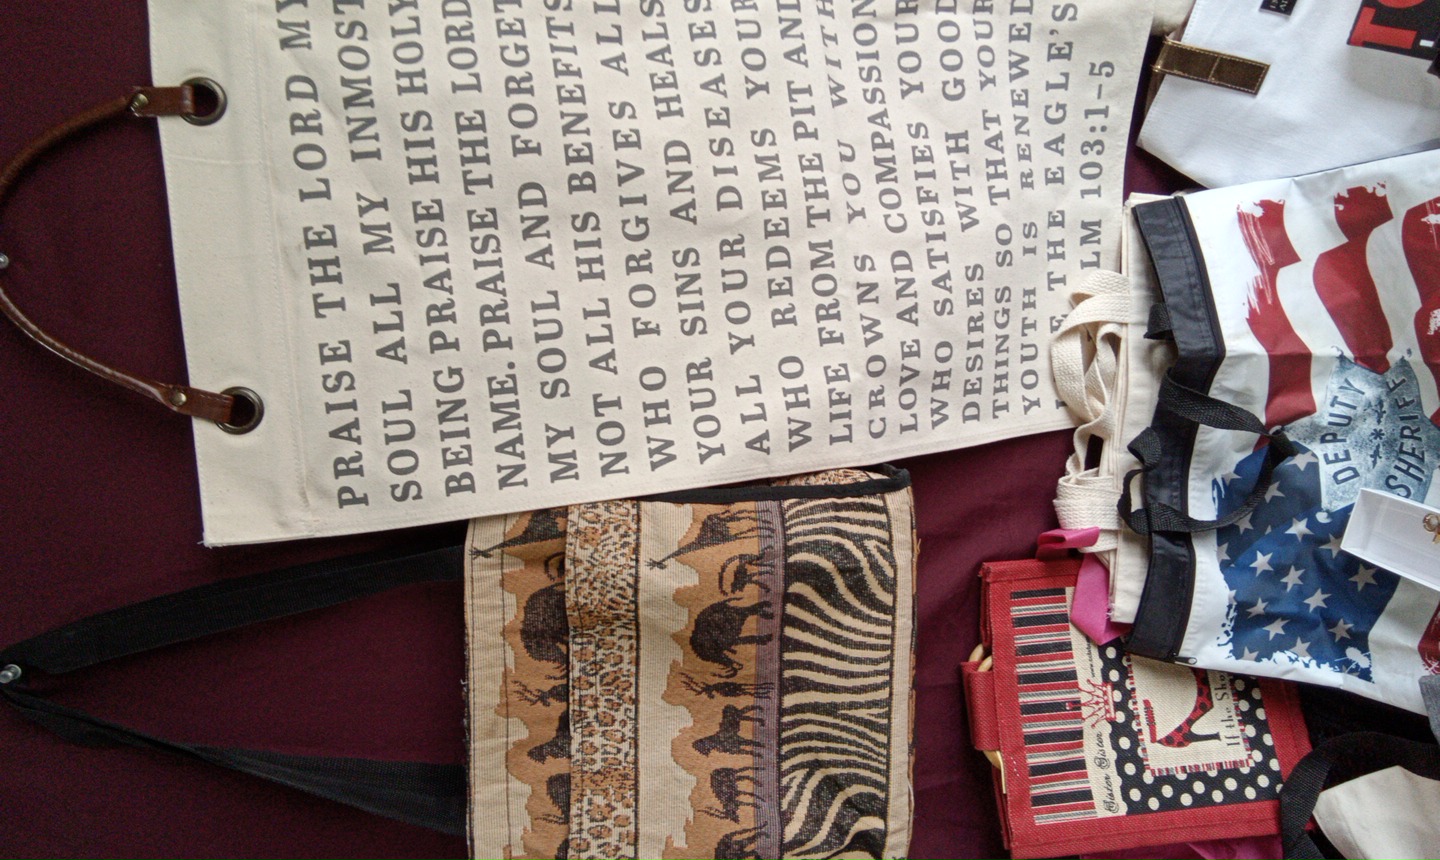 PRAISE THE LORD MY
SOUL ALL MY INMOST
BEING PRAISE HIS HOLY
NAME. PRAISE THE LORD
MY SOUL AND FORGET
NOT ALL HIS BENEFITS
WHO FORGIVES ALL
YOUR SINS AND HEALS
ALL YOUR DISEASES
WHO REDEEMS YOUR
LIFE FROM THE PIT AND
CROWNS YOU WITH
LOVE AND COMPASSION
WHO SATISFIES YOUR
DESIRES WITH GOOD
THINGS SO THAT YOUR
YOUTH IS RENEWED
THE EAGLE'S
LM 103:1-5
DEPUTY
SHERIFF
Sister Sister
If the Sho
TO